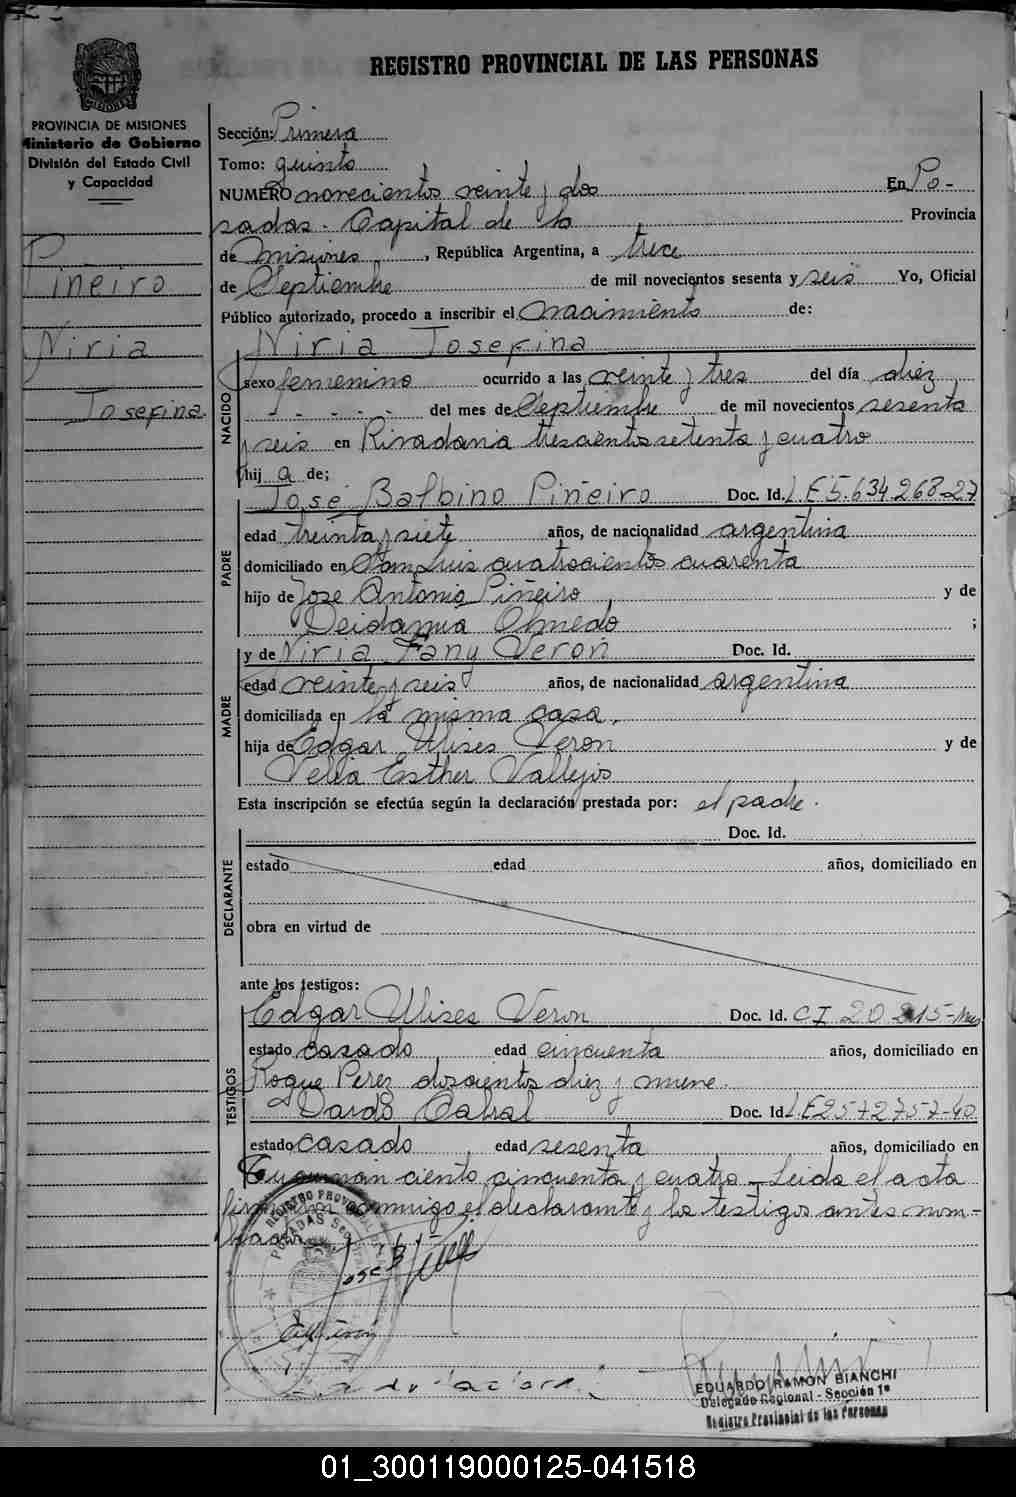 REGISTRO PROVINCIAL DE LAS PERSONAS
PROVINCIA DE MISIONES
Ministerio de Gobierno
División del Estado Civil
y Capacidad
Piñeiro
Niria
Josefina
Sección: Primera
Tomo: quinto
NUMERO novecientos veinte y dos En Po-
sadas. Capital de la Provincia
de Misiones, República Argentina, a trece
de Septiembre de mil novecientos sesenta y seis Yo, Oficial
Público autorizado, procedo a inscribir el nacimiento de:
Niria Josefina
NACIDO
sexo femenino ocurrido a las veinte y tres del día diez
- - - - - del mes de Septiembre de mil novecientos sesenta
y seis en Rivadavia trescientos setenta y cuatro
hij a de;
PADRE
José Balbino Piñeiro Doc. Id. L E 5.634.268-27
edad treinta y siete años, de nacionalidad argentina
domiciliado en San Luis cuatrocientos cuarenta
hijo de José Antonio Piñeiro y de
Deidamia Olmedo ;
MADRE
y de Niria Fany Verón Doc. Id.
edad veinte y seis años, de nacionalidad argentina
domiciliada en la misma casa.
hija de Edgar Ulises Veron y de
Velia Esther Vallejos
Esta inscripción se efectúa según la declaración prestada por: el padre.
DECLARANTE
Doc. Id.
estado edad años, domiciliado en
obra en virtud de
ante los testigos:
TESTIGOS
Edgar Ulises Veron Doc. Id. C I 20
estado casado edad cincuenta años, domiciliado en
Roque Perez doscientos diez y nueve.
Dardo Cabral Doc. Id. L.E 2572757-40
estado casado edad sesenta años, domiciliado en
Tucumán ciento cincuenta y cuatro - Leida el acta
firman conmigo el declarante y los testigos antes nom-
brados
REGISTRO PROVINCIAL
POSADAS
Jose B
EDUARDO RAMON BIANCHI
Delegado Regional - Sección 1ª
Registro Provincial de las Personas
01_300119000125-041518